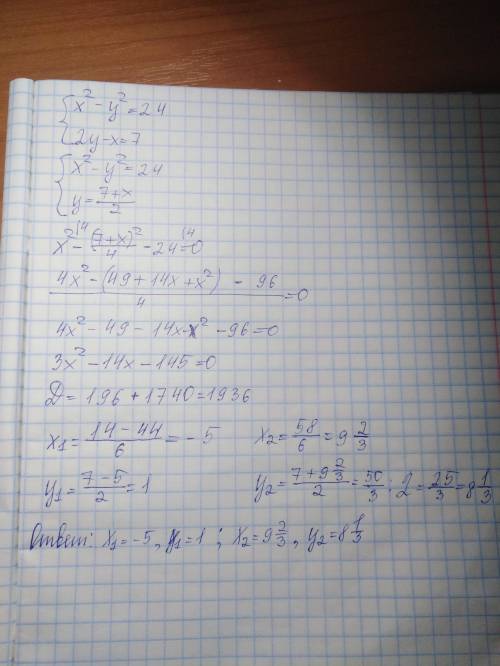 x² - y² = 24
2y - x = 7
x² - y² = 24
y = (7+x)/2
x² |4 - (7+x)²/4 - 24 |4 = 0
(4x² - (49 + 14x + x²) - 96)/4 = 0
4x² - 49 - 14x - x² - 96 = 0
3x² - 14x - 145 = 0
D = 196 + 1740 = 1936
x₁ = (14 - 44)/6 = -5    x₂ = 58/6 = 9 2/3
y₁ = (7 - 5)/2 = 1    y₂ = (7 + 9 2/3)/2 = 50/3 : 2 = 25/3 = 8 1/3
Ответ: x₁ = -5, y₁ = 1 ; x₂ = 9 2/3, y₂ = 8 1/3